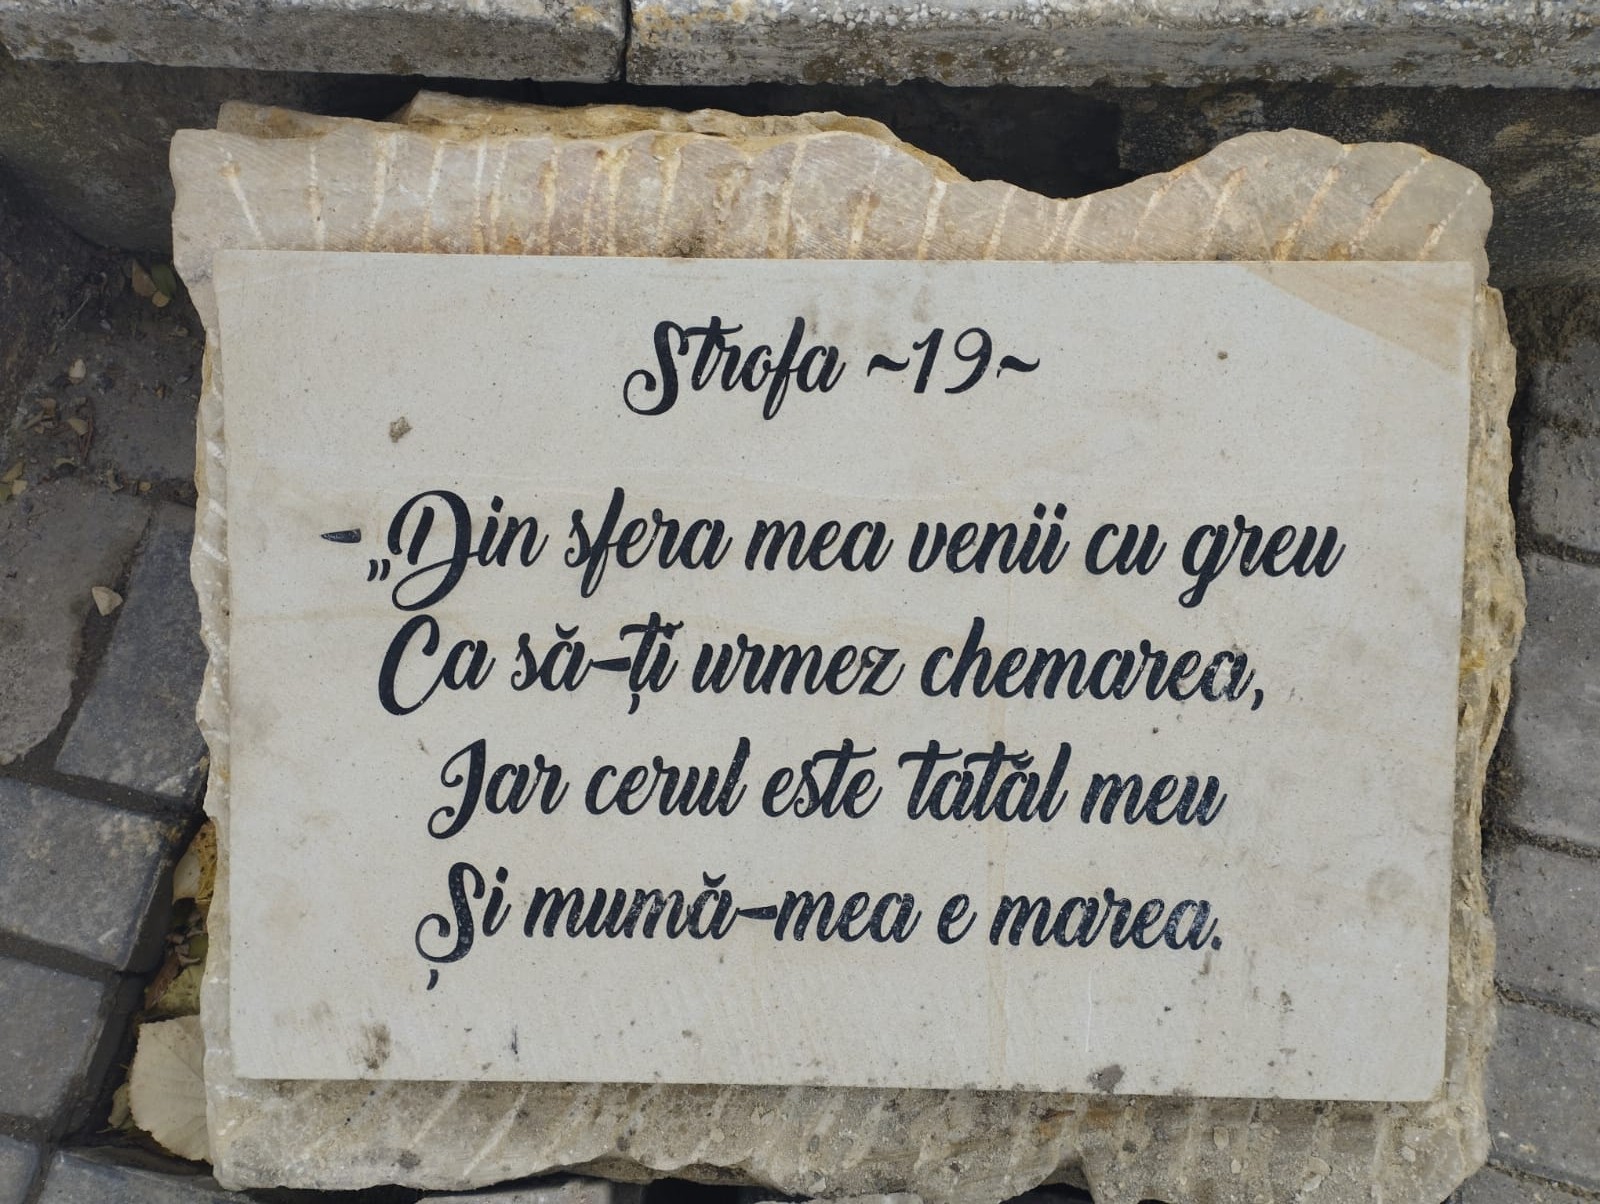 Strofa ~19~
-„Din sfera mea venii cu greu
Ca să-ți urmez chemarea,
Iar cerul este tatăl meu
Și mumă-mea e marea.